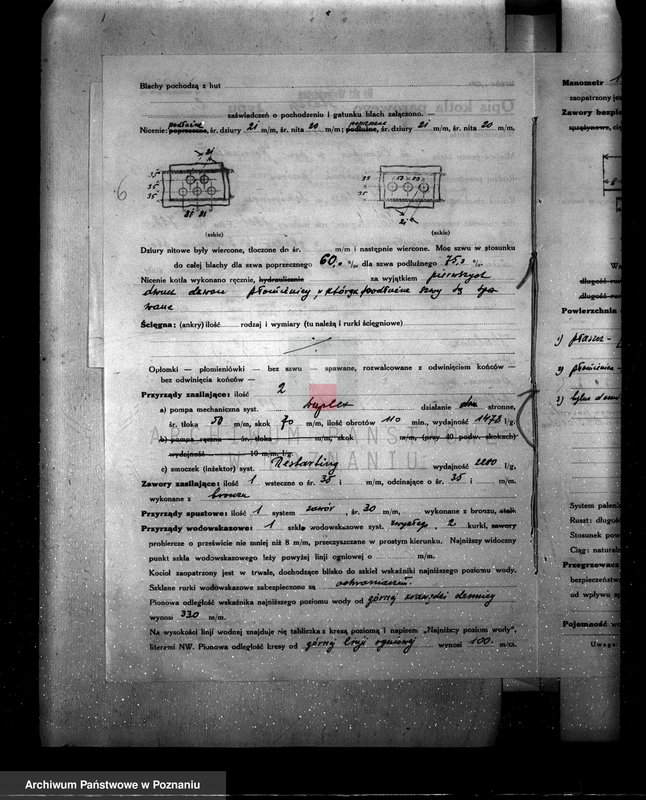 Blachy pochodzą z hut
zaświadczeń o pochodzeniu i gatunku blach załączono. —
podłużne poprzeczne
Nicenie: poprzeczne, śr. dziury 21 m/m, śr. nita 20 m/m; podłużne, śr. dziury 21 m/m, śr. nita 20 m/m.
(szkic) (szkic)
Dziury nitowe były wiercone, tłoczone do śr. m/m i następnie wiercone. Moc szwu w stosunku
do całej blachy dla szwa poprzecznego 60,0 %, dla szwa podłużnego 75,2 %.
Nicenie kotła wykonano ręcznie, hydraulicznie za wyjątkiem pierwszych
dwuch dzwon płomienicy, których podłużne szwy są spa
wane
Ścięgna: (ankry) ilość rodzaj i wymiary (tu należą i rurki ścięgniowe)
Opłomki — płomieniówki — bez szwu — spawane, rozwalcowane z odwinięciem końców —
bez odwinięcia końców —
Przyrządy zasilające: ilość 2
a) pompa mechaniczna syst. duplex działanie dwu stronne,
śr. tłoka 50 m/m, skok 70 m/m, ilość obrotów 110 min., wydajność l/g.
b) pompa ręczna śr. tłoka m/m, skok m/m, (przy 40 podw. skokach)
wydajność 10 m/m, l/g.
c) smoczek (inżektor) syst. Restarting wydajność 2200 l/g,
Zawory zasilające: ilość 1 wsteczne o śr. 35 i m/m, odcinające o śr. 35 i m/m.
wykonane z bronzu
Przyrządy spustowe: ilość 1 system zawór, śr. 30 m/m, wykonane z bronzu, stali
Przyrządy wodowskazowe: 1 szkło wodowskazowe syst. zwykłego, 2 kurki, zawory
probiercze o prześwicie nie mniej niż 8 m/m, przeczyszczane w prostym kierunku. Najniższy widoczny
punkt szkła wodowskazowego leży powyżej linji ogniowej o m/m.
Kocioł zaopatrzony jest w trwałe, dochodzące blisko do szkieł wskaźniki najniższego poziomu wody.
Szklane rurki wodowskazowe zabezpieczono są ochraniaczem
Pionowa odległość wskaźnika najniższego poziomu wody od górnej krawędzi dennicy
wynosi 330 m/m.
Na wysokości linji wodnej znajduje się tabliczka z kresą poziomą i napisem „Najniższy poziom wody",
literami NW. Pionowa odległość kresy od górnej linji ogniowej wynosi 100 m/m.
Manometr 1
zaopatrzony je
Zawory bezpie
sprężynowe, cię
Powierzchnia
1) płaszcz -
2) płomienica -
3)
System palen
Ruszt: długoś
Stosunek pow
Ciąg: natural
Przegrzewacz
bezpieczeństw
od wpływu sp
Pojemność wo
Uwaga
ARCHIWUM PAŃSTWOWE
W POZNANIU
Archiwum Państwowe w Poznaniu